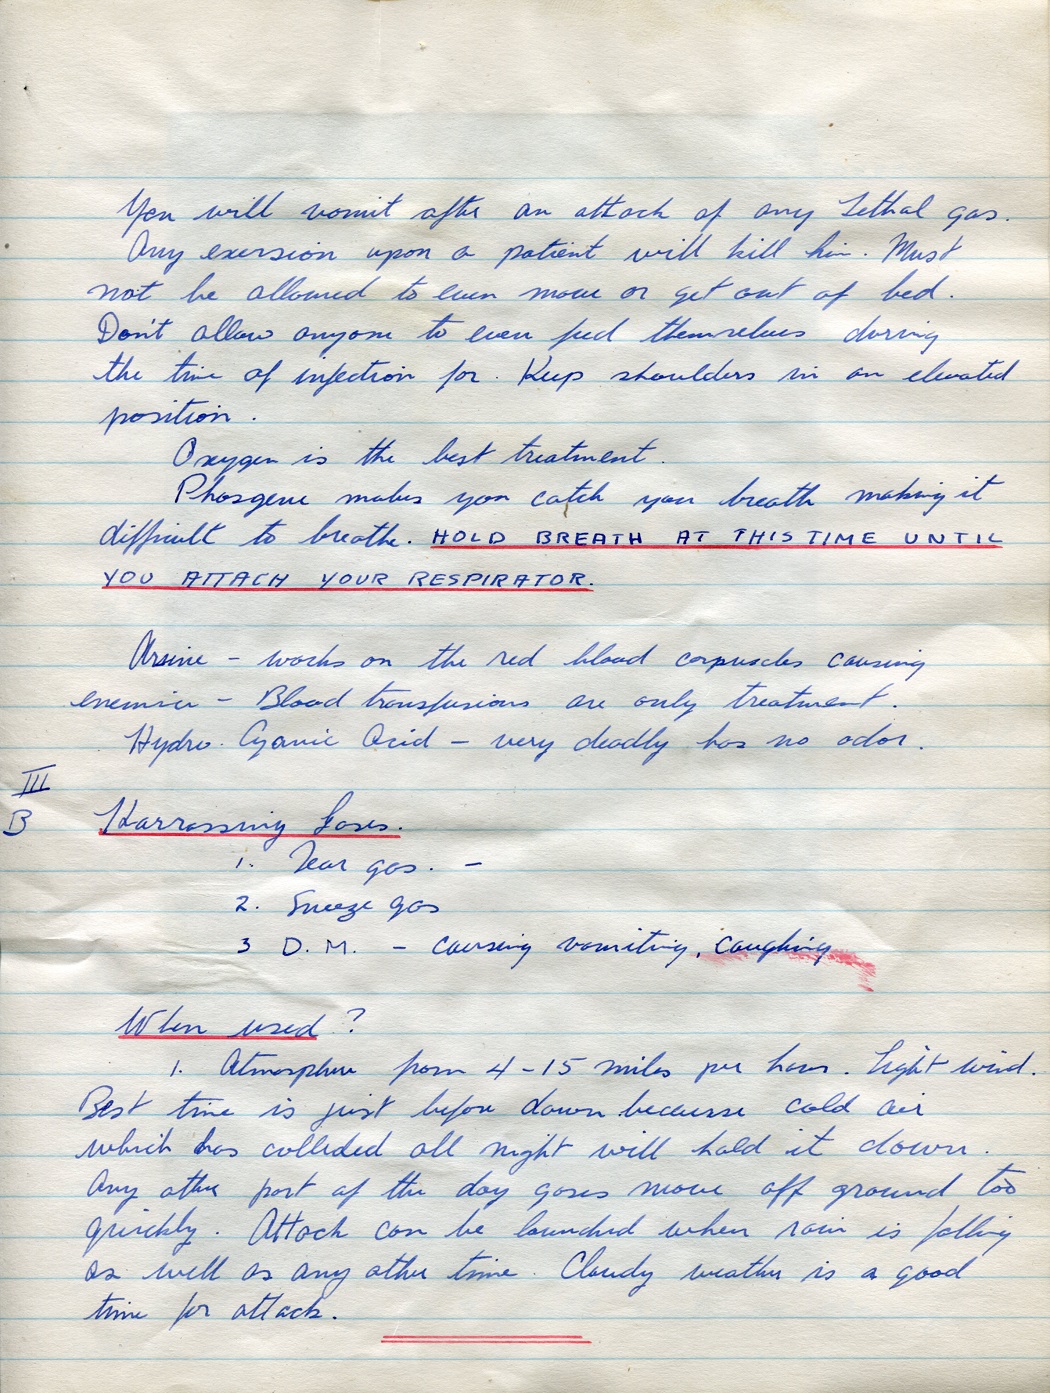 You will vomit after an attack of any Lethal gas.
Any exersion upon a patient will kill him. Must
not be allowed to even move or get out of bed.
Don't allow anyone to even feed themselves during
the time of infection for. Keep shoulders in an elevated
position.
Oxygen is the best treatment.
Phosgene makes you catch your breath making it
difficult to breathe. HOLD BREATH AT THIS TIME UNTIL
YOU ATTACH YOUR RESPIRATOR.
Arsine - works on the red blood corpuscles causing
enemia - Blood transfusions are only treatment.
Hydro. Cyanic Acid - very deadly has no odor.
III
B Harrassing Gases.
1. Tear gas. -
2. Sneeze gas
3 D.M. - causing vomiting, coughing
When used?
1. Atmosphere from 4-15 miles per hour. Light wind.
Best time is just before dawn because cold air
which has collected all night will hold it down.
Any other part of the day gases move off ground too
quickly. Attack can be launched when rain is falling
as well as any other time. Cloudy weather is a good
time for attack.